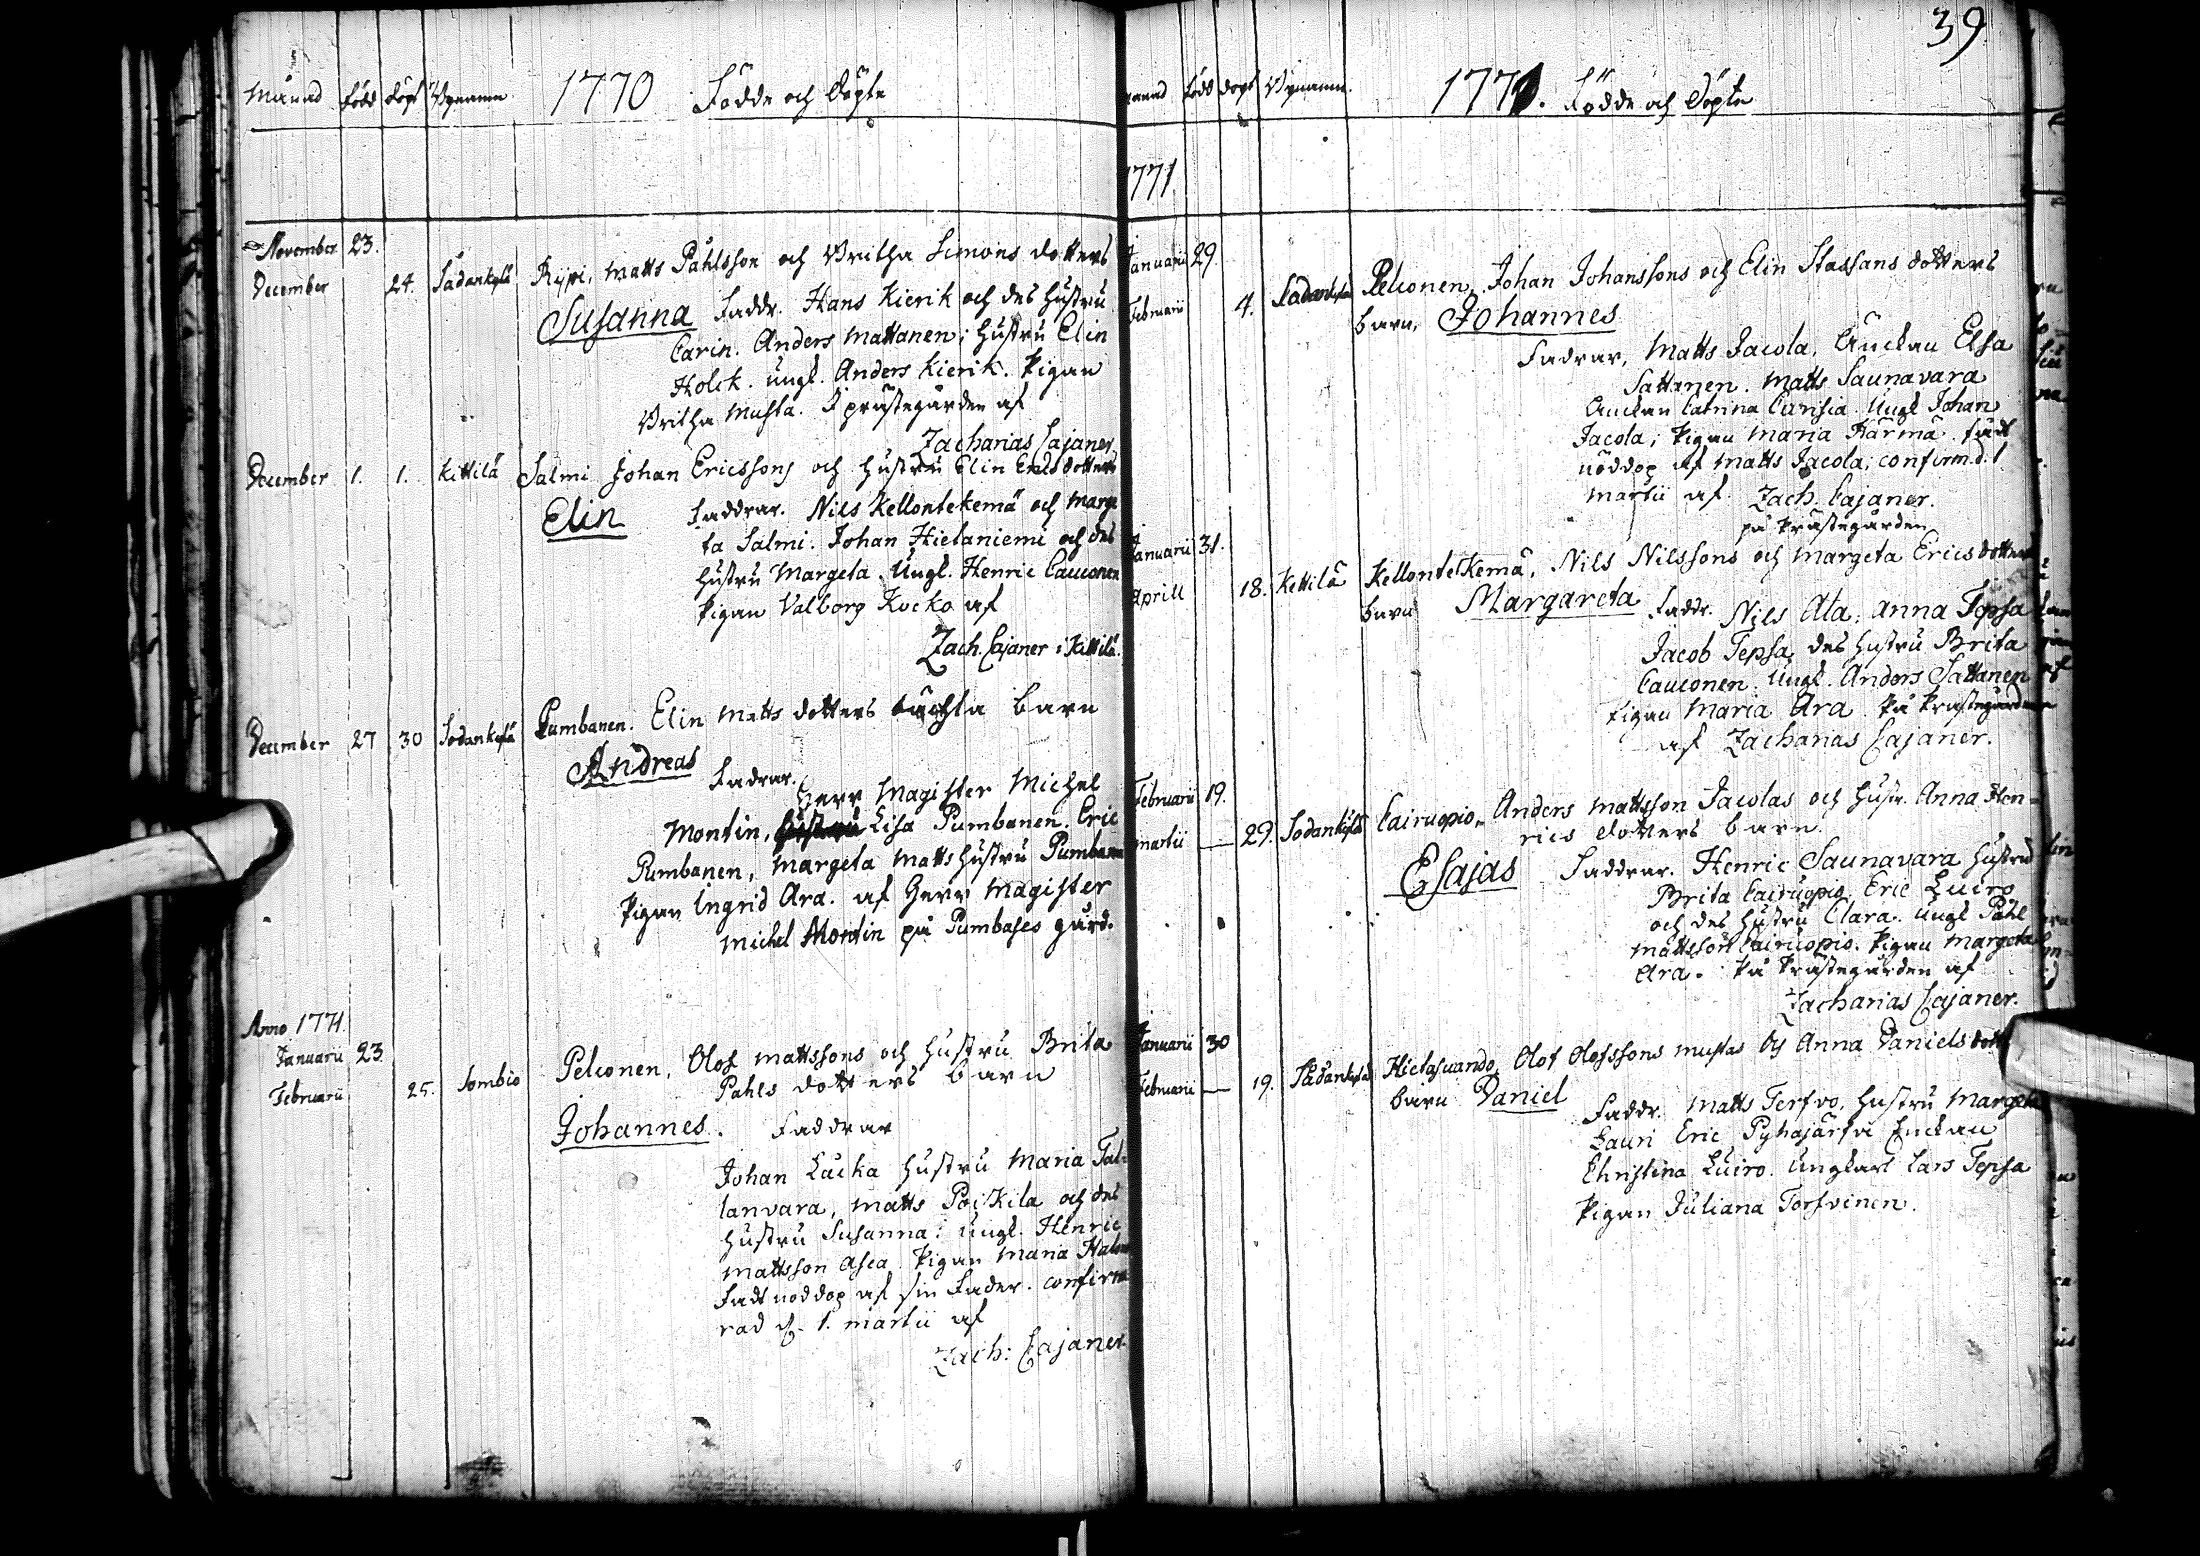 Månad född döpt Bynamn 1770 Födde och Döpte
November 23.
December 24. Sådankylä Rijpi, Matts Påhlsson och Britha Simons dotters
Susanna Faddr. Hans Kierik och des hustru
Carin. Anders Mattanen; hustru Elin
Holck. ungk. Anders Kierik. Pigan
Britha Musta. I prästegården af
Zacharias Cajaner
December 1. 1. Kittilä Salmi Johan Ericssons och hustru Elin Erics dotters
Elin Faddrar. Nils Kellontekemä och Marge
ta Salmi. Johan Hietaniemi och des
hustru Margeta. Ungk. Henric Cauconen
Pigan Valborg Kocko af
Zach. Cajaner i Kittilä.
December 27 30 Sodankylä Pumbanen. Elin Matts dotters oächta barn
Andreas Fadrar.
Herr Magister Michel
Montin, Lisa Pumbanen. Eric
Pumbanen, Margeta Matts hustru Pumbanen
Pigan Ingrid Ara. af Herr Magister
Michel Montin på Pumbases gård.
Anno 1771.
Januarii 23. Pelconen, Olof Mattssons och hustru Brita
Februarii 25. Sombio Pahls dotters barn
Johannes. Faddrar
Johan Lacka hustru Maria Tal-
lanvara, Matts Poikkila och des
hustru Susanna. ungk. Henric
Mattsson Asea. Pigan Maria
Fadt nöddop af sin Fader. Confirme
rad d. 1. Martii af
Zach: Cajaner
39
Månad född döpt Bynamn. 1771. Födde och Döpte
1771.
Januarii 29. Pelconen, Johan Johanssons och Elin Staffans dotters
Februarii 4. Sodankylä barn, Johannes
Fadrar, Matts Jacola, Enckan Elsa
Sattanen. Matts Saunavara
Enckan Catrina Curisia. Ungk Johan
Jacola; Pigan Maria Härmä. fådt
nöddop af Matts Jacola; confirm. d. 1
Martii af Zach. Cajaner.
på Prästegården
Januarii 31. Kellontekemä, Nils Nilssons och Margeta Erics dotters
Aprill 18. Kittilä barn Margareta Faddr. Nils Ala, Anna Tepsa
Jacob Tepsa, des hustru Brita
Cauconen. ungk. Anders Sattanen
Pigan Maria Ara. På Prästegården
af Zacharias Cajaner.
Februarii 19. Cairuopio, Anders Mattsson Jacolas och hustr. Anna Hen-
Martii — 29. Sodankylä rics dotters barn.
Esajas Faddrar. Henric Saunavara hustru
Brita Cairuopio. Eric Luiro
och des hustru Clara. ungk Påhl
Mattsson Cairuopio. Pigan Margeta
Ara. På Prästegården af
Zacharias Cajaner.
Januarii 30 Hietasuando, Olof Olofssons Mustas och Anna Daniels dott
Februarii — 19. Sådankylä barn Daniel
Faddr. Matts Terfvo, hustru Margeta
Lauri Eric Pyhajärfvi Enckan
Christina Luiro. ungkarl Lars Tepsa
Pigan Juliana Torfvinen.